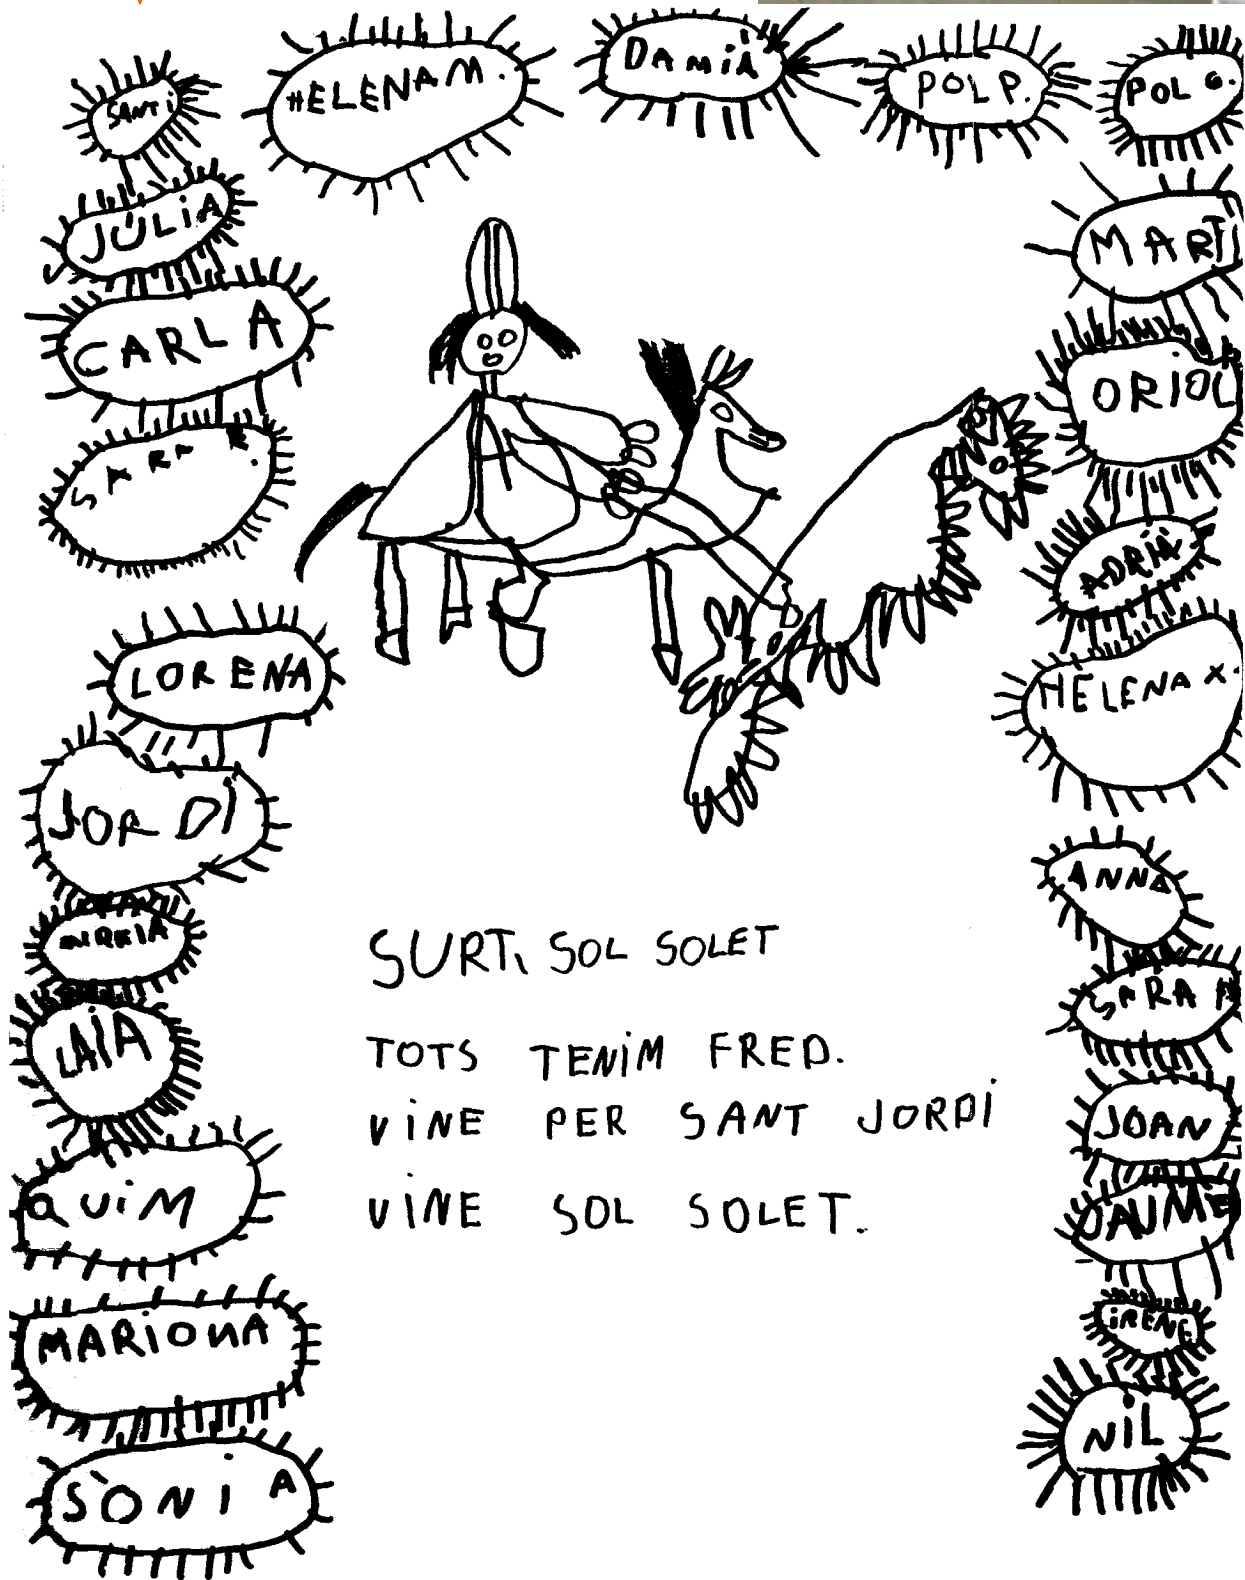 SANTI
HELENA M.
DAMIÀ
POL P.
POL G.
JÚLIA
CARLA
SARA R.
LORENA
JORDI
MIREIA
LAIA
QUIM
MARIONA
SÒNIA
MARTÍ
ORIOL
ADRIÀ
HELENA X.
ANNA
SARA
JOAN
JAUME
IRENE
NIL
SURT, SOL SOLET
TOTS TENIM FRED.
VINE PER SANT JORDI
VINE SOL SOLET.